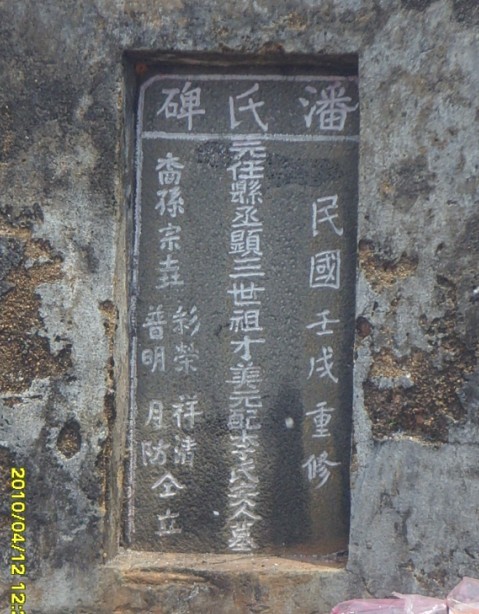 潘氏碑
民國壬戌重修
元任縣丞顯三世祖才美元配李氏安人墓
裔孫宗
彩榮 祥清
普明 月防 仝立
2010/04/12 12: